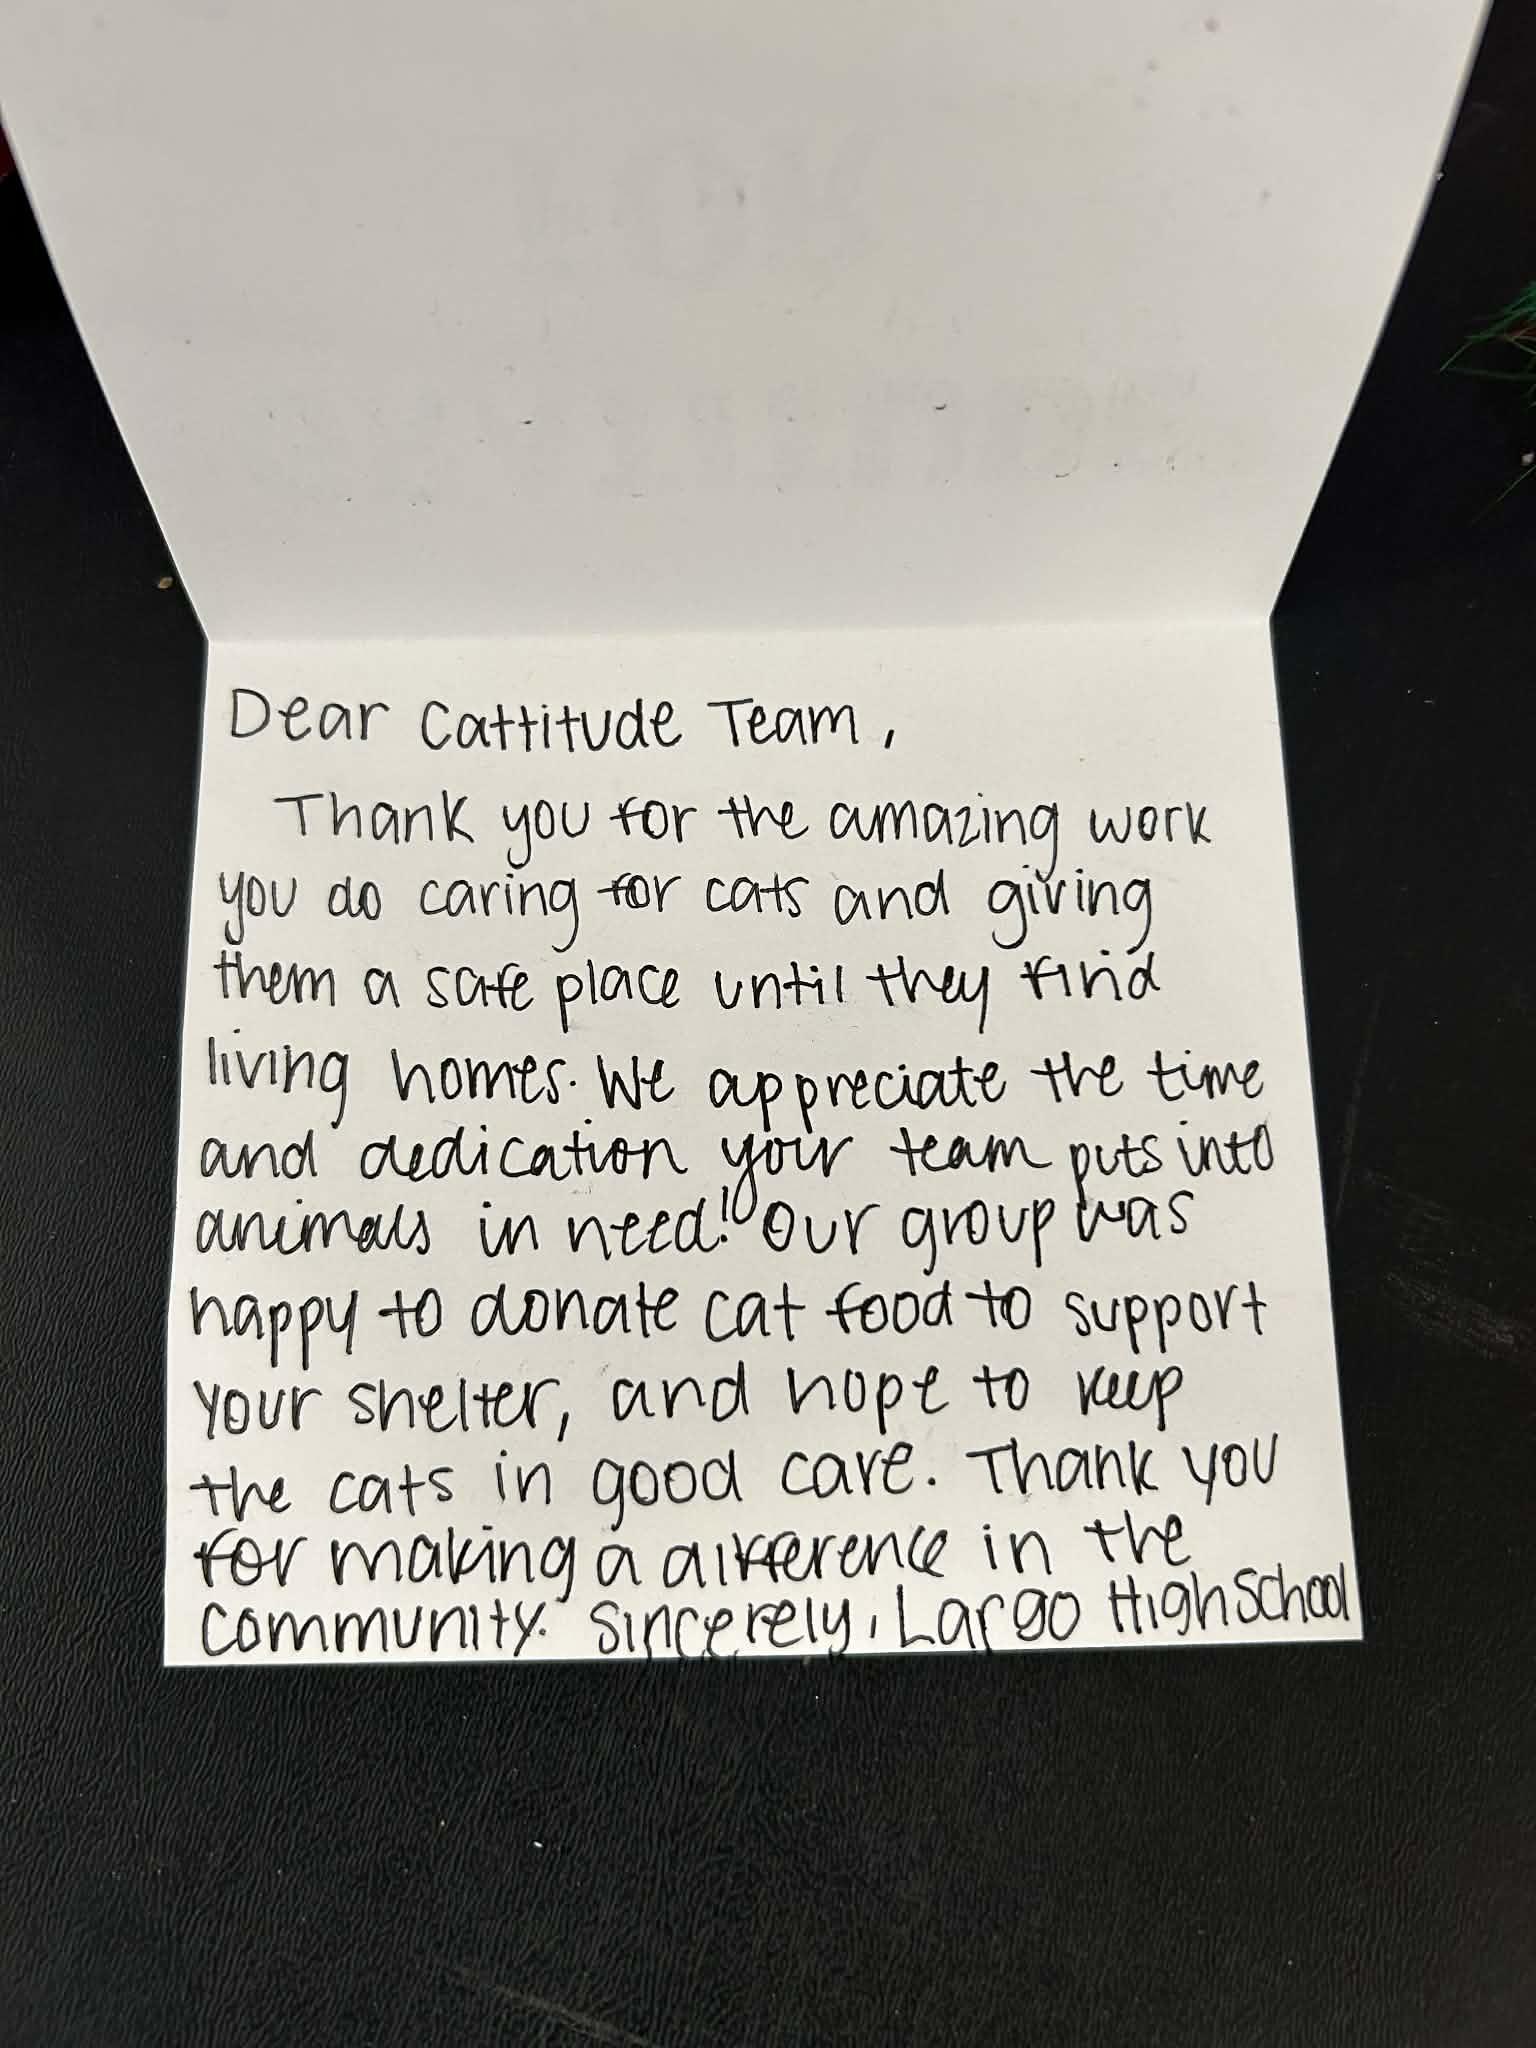 Dear Cattitude Team,
Thank you for the amazing work
you do caring for cats and giving
them a safe place until they find
living homes. We appreciate the time
and dedication your team puts into
animals in need! Our group was
happy to donate cat food to support
your shelter, and hope to keep
the cats in good care. Thank you
for making a difference in the
community. Sincerely, Largo High School